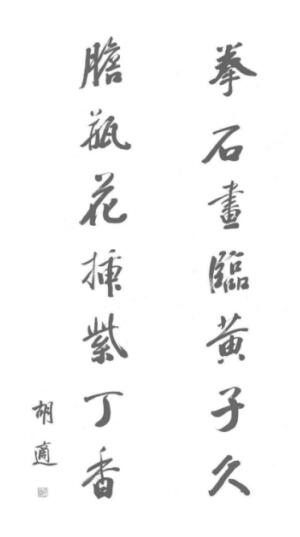 拳石畫臨黃子久
膽瓶花插紫丁香
胡適